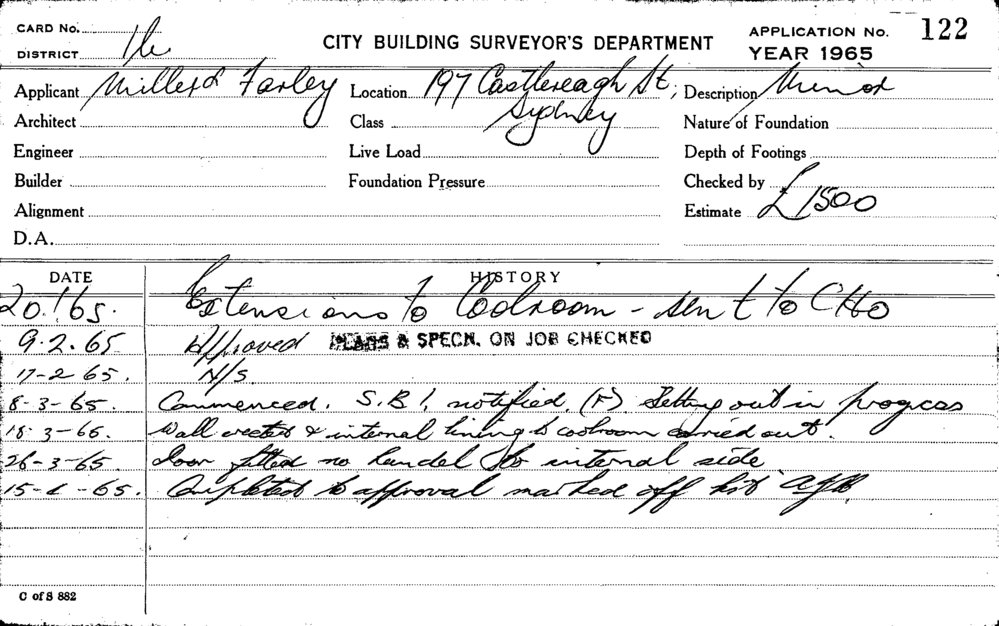 CARD No.
DISTRICT 1c
CITY BUILDING SURVEYOR'S DEPARTMENT
APPLICATION No. 122
YEAR 1965
Applicant Miller & Farley
Location 197 Castlereagh St, Sydney
Description Minor
Architect
Class
Nature of Foundation
Engineer
Live Load
Depth of Footings
Builder
Foundation Pressure
Checked by
Alignment
Estimate £1500
D.A.
DATE HISTORY
20.1.65. Extensions to Coolroom - sent to CHO
9.2.65 Approved PLANS & SPECN. ON JOB CHECKED
17-2 65. N/S.
8-3-65. Commenced. S.B.I. notified. (F) Setting out in progress
18.3-65. Wall erected & internal lining to coolroom carried out.
26-3-65. Door fitted no handel to internal side
15-4-65. Completed to approval marked off list
C of S 882